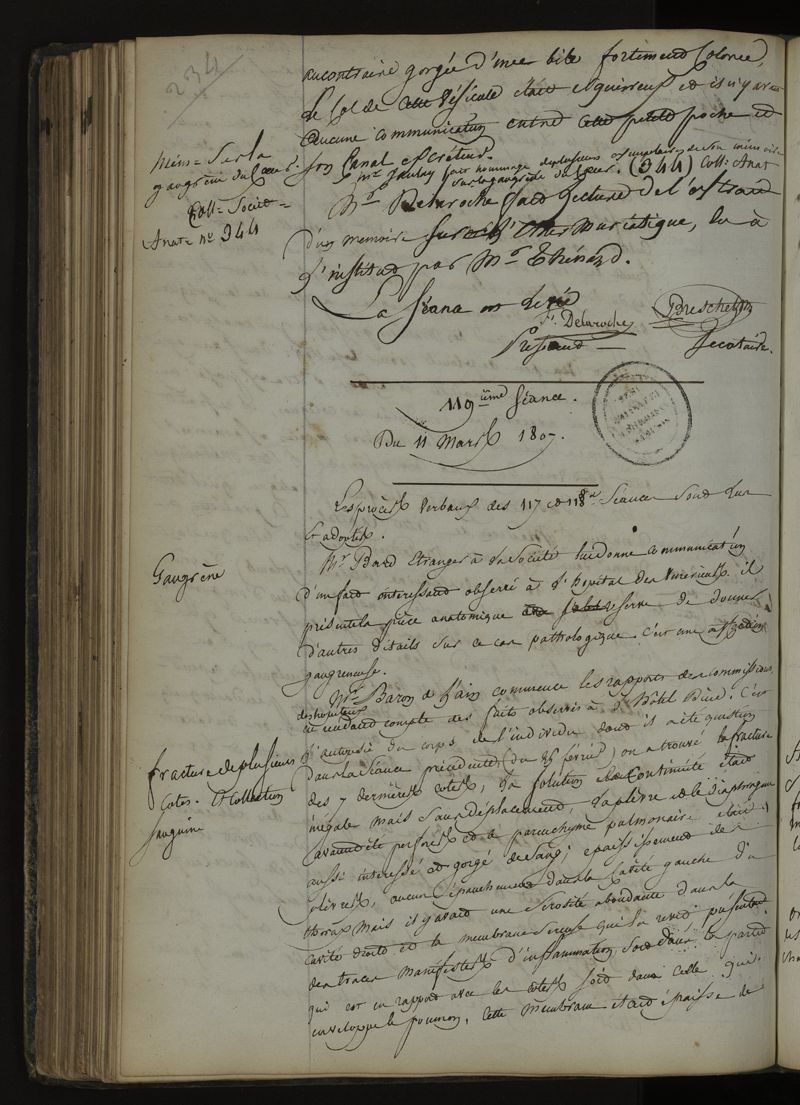 234
au contraire gorgée d'une bile fortement Colorée,
le Col de Cette Vésicule était squirreux et il n'y avait
aucune communication entre Cette petite poche et
son Canal excréteur.
Mr fait hommage de plusieurs exemplaires de son mémoire
sur la gangrène du Cœur. (344) Coll: Anat
Mém= Sur la
gangrène du Cœur.
Coll= Société=
Anat= nº 344
Mr Delaroche fait Lecture de l'extrait
d'un memoire sur l'Ether Muriatique, lu à
l'institut par Mr Thénard.
La Séance est levée
F. Delaroche
Président
Breschet
Secrétaire.
119ième Séance.
Du 11 Mars 1807.
Les procès Verbaux des 117 et 118e Séances Sont lus
et adoptés.
Gangrène
Mr Bard Etranger à la Société lui donne communication
d'un fait interessant observé à l'hopital des Vénériens. il
présente la pièce anatomique se reserve de donner
d'autres détails sur ce cas pathologique c'est une affection
gangreneuse.
Mr Baron de commence les rapports des commissions
des hopitaux
en rendant compte des faits observés à l'Hôtel Dieu. C'est
l'autopsie du corps de l'individu dont il a été question
dans la Séance précédente (du 25 février) on a trouvé la fracture
fracture de plusieurs
Cotes. Et Collection
Sanguine
des 7 dernières cotes, la solution de Continuité était
inégale mais sans déplacement, la plèvre et le Diaphragme
avaient été perforés et le parenchyme pulmonaire était
aussi interessé et gorgé de sang; epaississement de
plèvres, aucun épanchement dans la Cavité gauche du
thorax Mais il y avait une Sérosité abondante dans la
Cavité droite et la membrane séreuse qui la revet présentait
des traces manifestes d'inflammation soit dans la partie
qui est en rapport avec les cotes soit dans celle qui
enveloppe le poumon, Cette membrane était épaisse de